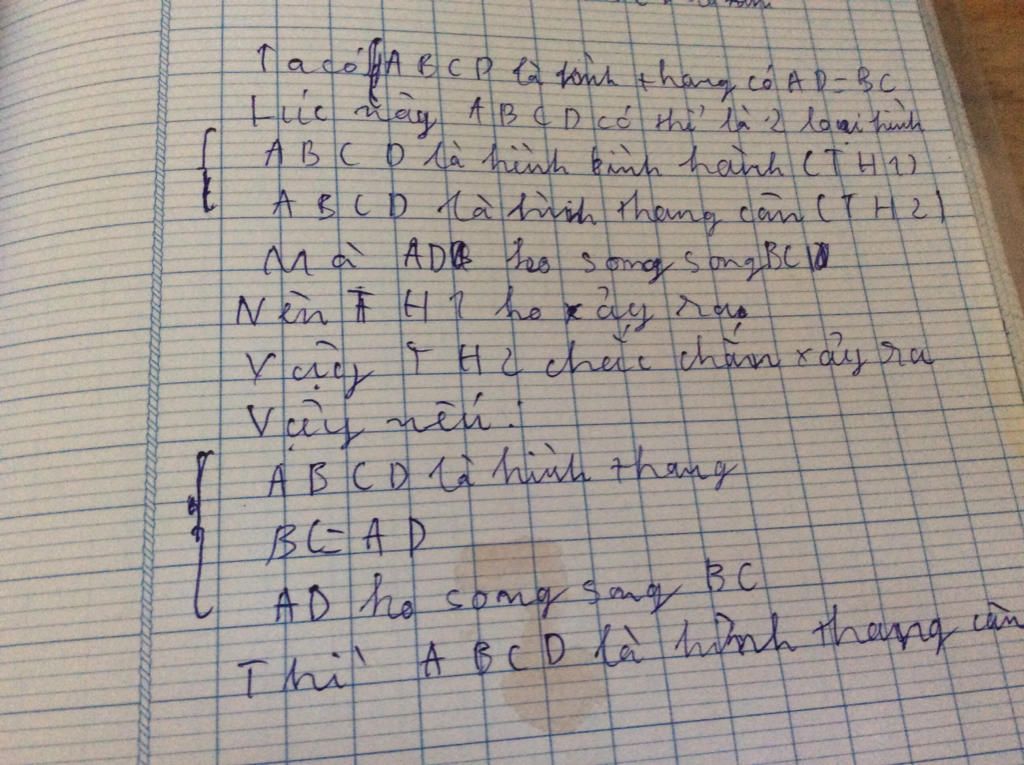 Ta có ABCD là hình thang có AD=BC
Lúc này ABCD có thể là 2 loại hình
ABCD là hình bình hành (TH1)
ABCD là hình thang cân (TH2)
Mà AD ko song song BC
Nên TH1 ko xảy ra
Vậy TH2 chắc chắn xảy ra
Vậy nếu:
ABCD là hình thang
BC=AD
AD ko song song BC
Thì ABCD là hình thang cân